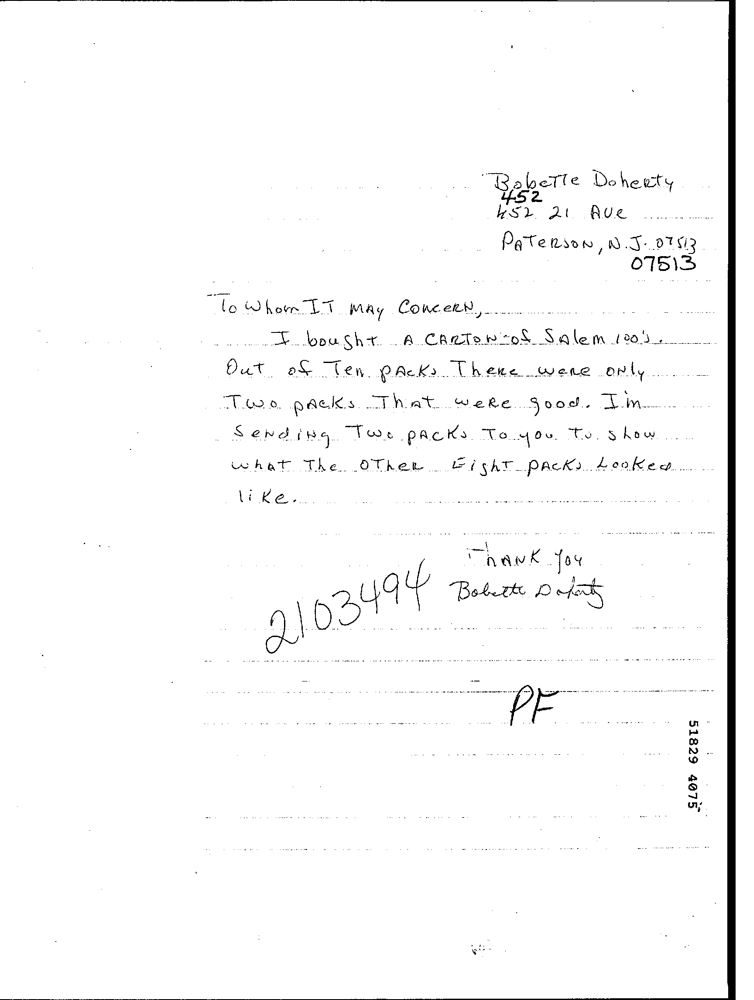 Bobette Doherty
452
452 21 Ave
Paterson, N.J. 07513
07513
To Whom It May Concern,
I bought A CARTON of Salem 100's.
Out of Ten packs There were only
Two packs That were good. I'm
Sending Two packs To you To show
what The OTher Eight packs Looked
like.
Thank You
Bobette Doherty
2103494
PF
51829 4075